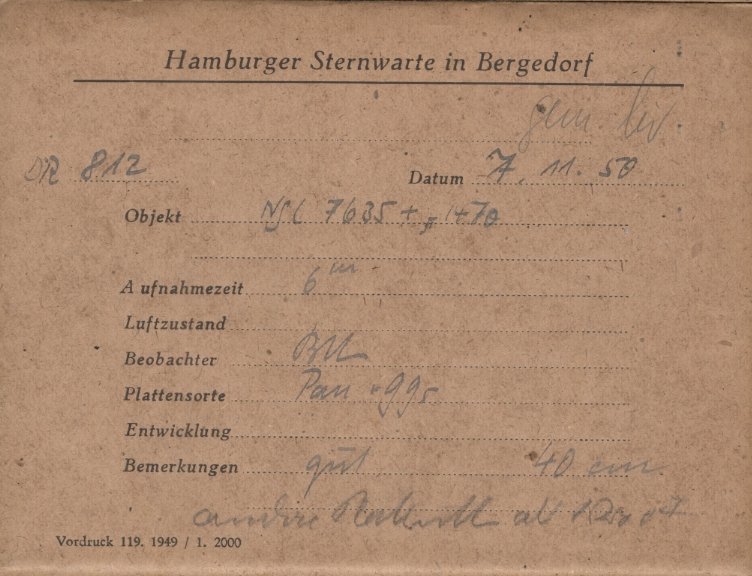 Hamburger Sternwarte in Bergedorf
DR 812
Datum 7. 11. 50
Objekt NGC 7635 +
Aufnahmezeit 6 m
Luftzustand
Beobachter
Plattensorte Pan
Entwicklung
Bemerkungen gut 40 cm
andere als
Vordruck 119. 1949 / 1. 2000